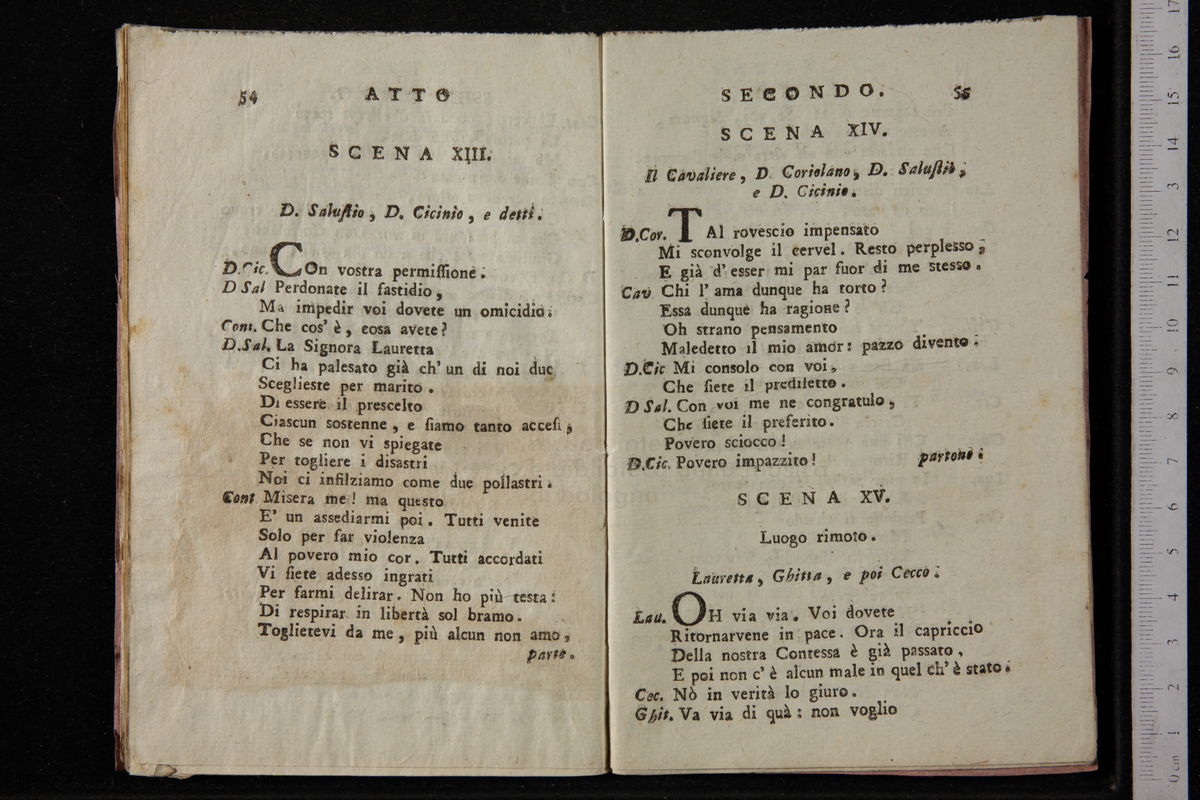 54 ATTO
SCENA XIII.
D. Saluſtio, D. Cicinio, e detti.
D.Cic. Con vostra permiſſione.
D Sal Perdonate il fastidio,
Ma impedir voi dovete un omicidio.
Cont. Che cos' è, cosa avete?
D.Sal. La Signora Lauretta
Ci ha palesato già ch' un di noi due
Sceglieste per marito.
Di essere il prescelto
Ciascun sostenne, e ſiamo tanto acceſi,
Che se non vi spiegate
Per togliere i disastri
Noi ci infilziamo come due pollastri.
Cont Misera me! ma questo
E' un assediarmi poi. Tutti venite
Solo per far violenza
Al povero mio cor. Tutti accordati
Vi ſiete adesso ingrati
Per farmi delirar. Non ho più testa:
Di respirar in libertà sol bramo.
Toglietevi da me, più alcun non amo,
parte.
SECONDO. 55
SCENA XIV.
Il Cavaliere, D. Coriolano, D. Saluſtio,
e D. Cicinio.
D.Cor. TAl rovescio impensato
Mi sconvolge il cervel. Resto perplesso,
E già d' esser mi par fuor di me stesso.
Cav Chi l' ama dunque ha torto?
Essa dunque ha ragione?
Oh strano pensamento
Maledetto il mio amor: pazzo divento.
D.Cic Mi consolo con voi,
Che ſiete il prediletto.
D Sal. Con voi me ne congratulo,
Che ſiete il preferito.
Povero sciocco!
D.Cic. Povero impazzito! partono.
SCENA XV.
Luogo rimoto.
Lauretta, Ghitta, e poi Cecco.
Lau. OH via via. Voi dovete
Ritornarvene in pace. Ora il capriccio
Della nostra Contessa è già passato,
E poi non c' è alcun male in quel ch' è stato.
Cec. Nò in verità lo giuro.
Ghit. Va via di quà: non voglio